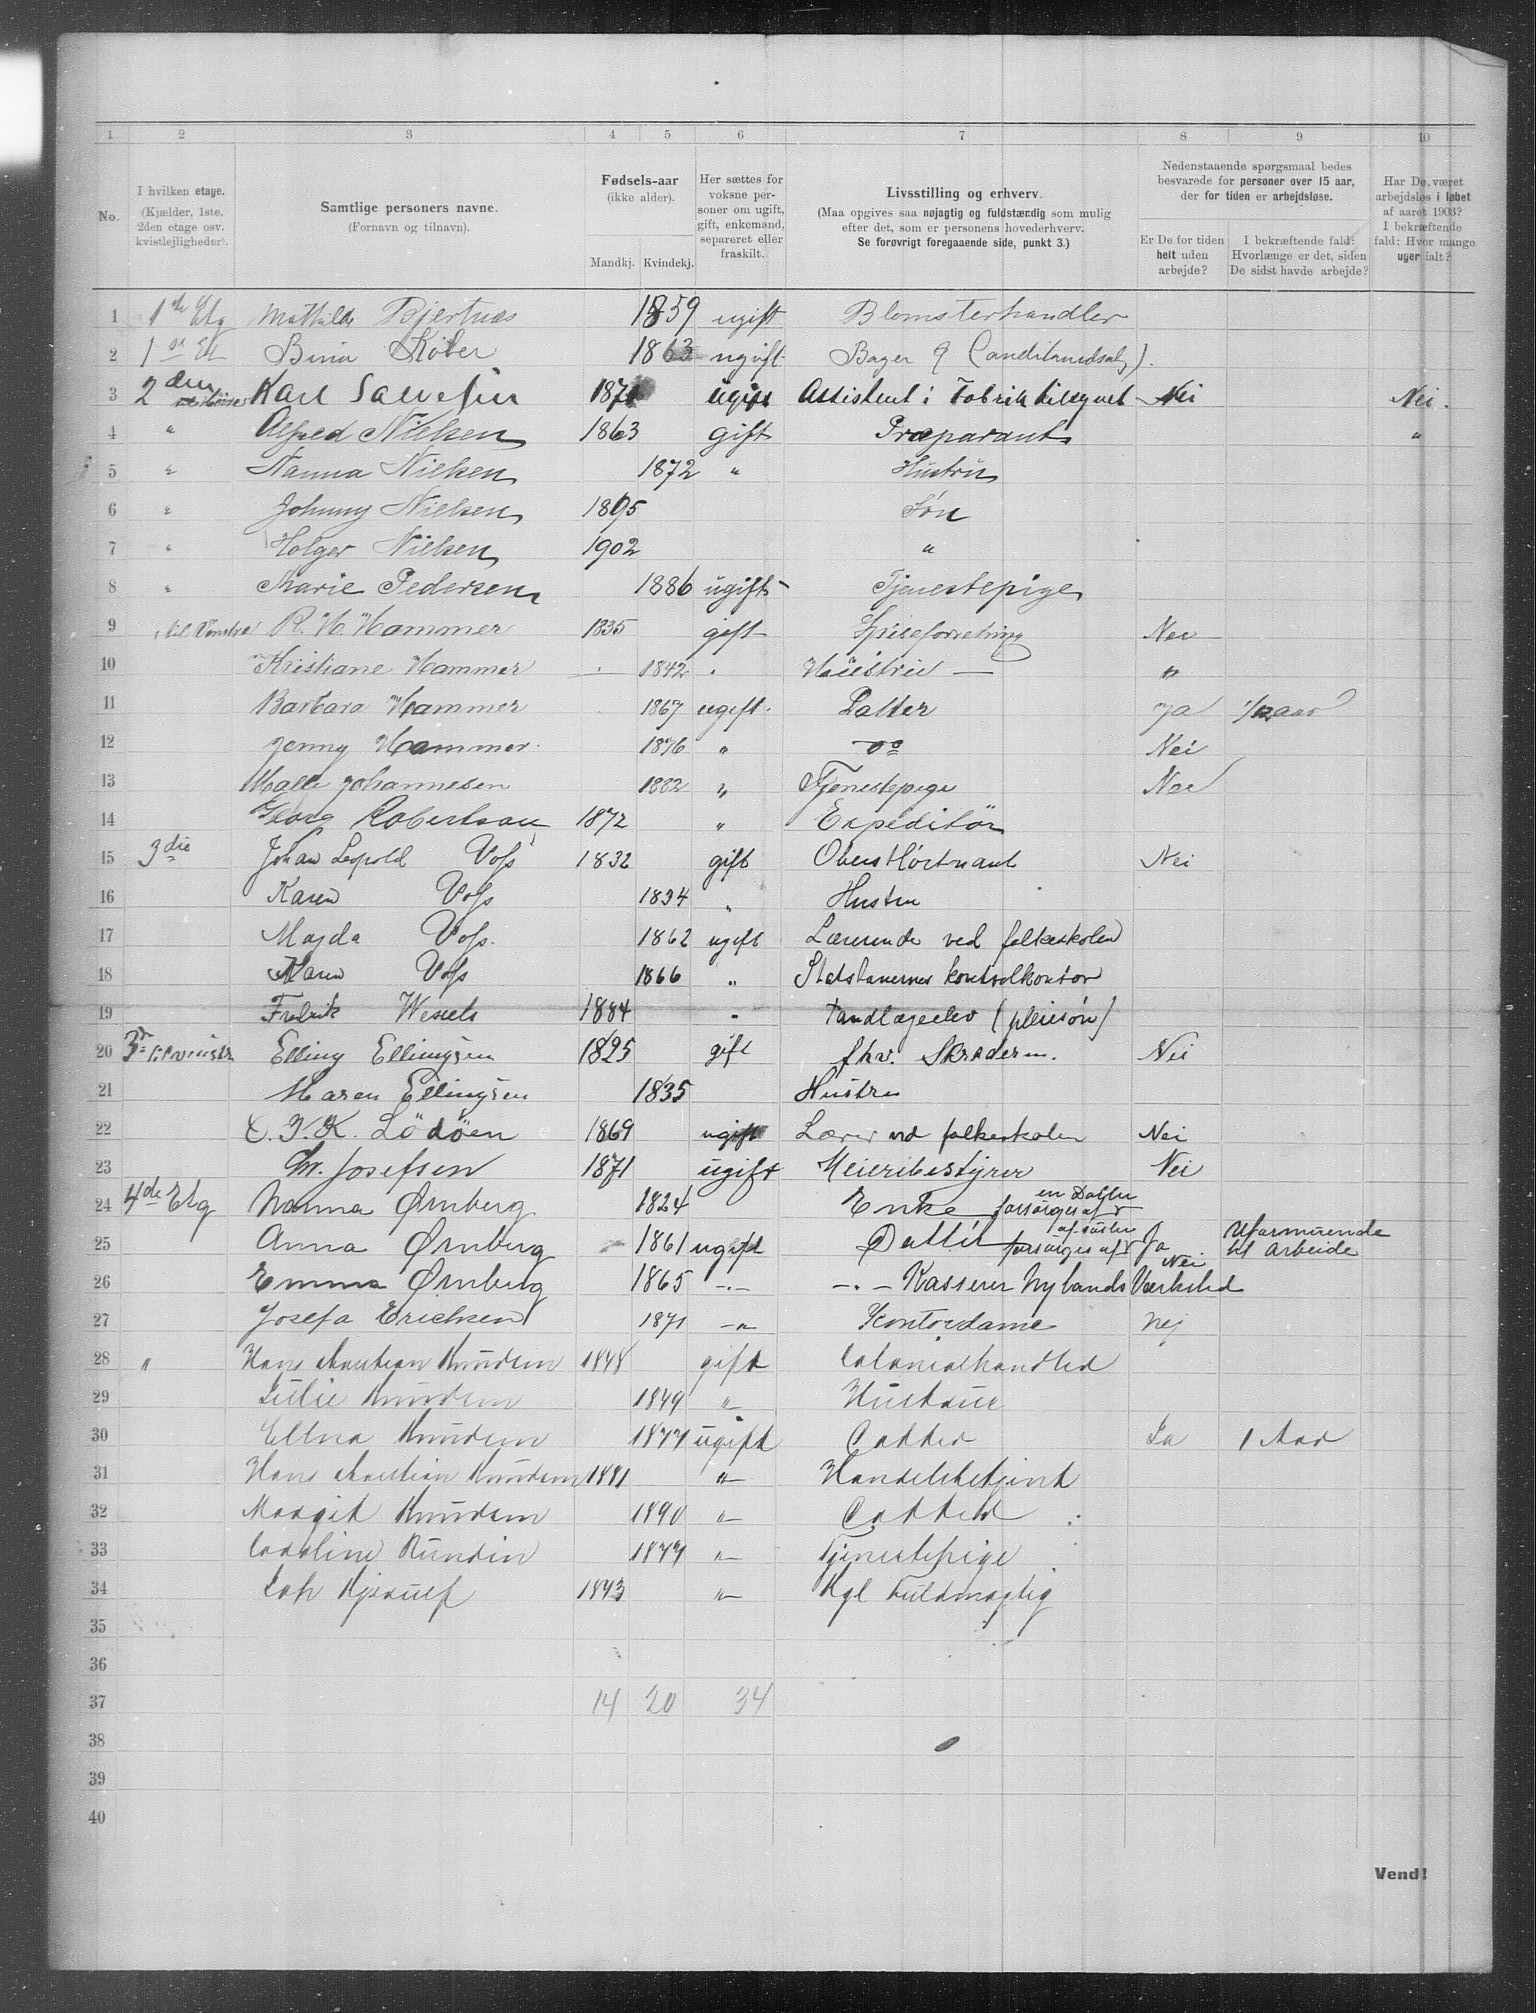 1 2 3 4 5 6 7 8 9 10
No.
I hvilken etage.
(Kjælder, 1ste,
2den etage osv.
kvistleiligheder).
Samtlige personers navne.
(Fornavn og tilnavn).
Fødsels-aar
(ikke alder).
Mandkj. Kvindekj.
Her sættes for
voksne per-
soner om ugift,
gift, enkemand,
separeret eller
fraskilt.
Livsstilling og erhverv.
(Maa opgives saa nøjagtig og fuldstærdig som mulig
efter det, som er personens hovederhverv.
Se forøvrigt foregaaende side, punkt 3.)
Nedenstaaende spørgsmaal bedes
besvarede for personer over 15 aar,
der for tiden er arbejdsløse.
Er De for tiden
helt uden
arbejde?
I bekræftende fald:
Hvorlænge er det, siden
De sidst havde arbejde?
Har De været
arbejdsløs i løbet
af aaret 1903?
I bekræftende
fald: Hvor mange
uger ialt?
1 1ste Etg Mathilde Bjertnæs 1859 ugift Blomsterhandler
2 1ste Et Køber 1863 ugift Bager &
3 2den Karl Salvesen 1871 ugift Assistent i Fabriktilsynet Nei Nei.
4 " Alfred Nielsen 1863 gift Præparant "
5 " Nanna Nielsen 1872 " Hustru
6 " Johnny Nielsen 1895 Søn
7 " Holger Nielsen 1902 "
8 " Marie Pedersen 1886 ugift Tjenestepige
9 til Venstre R. H. Hammer 1835 gift Spiseforretning Nei
10 Kristiane Hammer 1842 " Hustru — "
11 Barbara Hammer 1867 ugift. Datter Ja 1/2 aar
12 Jenny Hammer. 1876 " do Nei
13 Malle Johannesen 1882 " Tjenestepige Nei
14 Georg Robertson 1872 " Expeditör
15 3die Johan Leopold Voss 1832 gift Oberstløitnant Nei
16 Karen Voss 1834 " Hustru
17 Magda Voss. 1862 ugift Lærerinde ved folkeskolen
18 Karen Voss 1866 " Statsbanernes kontrolkontor
19 Fredrik Wessels 1884 " Tandlægeelev (pleiesøn)
20 3die til venstre Elling Ellingsen 1825 gift fhv. Skræderm. Nei
21 Maren Ellingsen 1835 Hustru
22 O. J. K. Lödöen 1869 ugift Lærer ved folkeskolen Nei
23 Chr. Josefsen 1871 ugift Meieribestyrer Nei
24 4de Etg Nanna Ørnberg 1824 Enke forsørges af en Datter
25 Anna Ørnberg 1861 ugift Datter forsørges af søster Ja Uformuende til Arbeide
26 Emma Ørnberg 1865 -"- -"- Kasserer Nylands Værksted Nei
27 Josefa Erichsen 1871 -"- Kontordame Nej
28 " Hans Christian Knudsen 1848 gift Colonialhandled
29 Julie Knudsen 1849 " Hustrue
30 Ellna Knudsen 1877 ugift Datter Ja 1 Aar
31 Hans Christian Knudsen 1881 " Handelsbetjent
32 Margit Knudsen 1890 " Datter
33 Caroline Rundin 1877 " Tjenestepige
34 Joh Kjerulf 1843 " Kgl Fuldmægtig
35
36
37 14 20 34
38
39
40
Vend!